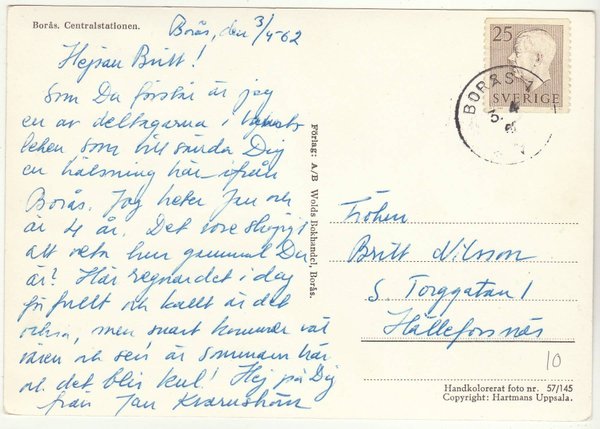 Borås. Centralstationen.
Borås, den 3/4-62
Hejsan Britt!
Som Du förstår är jag
en av deltagarna i
leken som vill sända Dig
en hälsning här ifrån
Borås. Jag heter Jan och
är 4 år. Det vore
att veta hur gammal Du
är? Här regnar det i dag
för fullt och kallt är det
också, men snart kommer väl
våren och sen är sommaren här
och det blir kul! Hej på Dig
från Jan Kvarnström
Förlag: A/B Wolds Bokhandel, Borås.
25
SVERIGE
BORÅS 1
Fröken
Britt Nilsson
S. Torggatan 1
Hälleforsnäs
10
Handkolorerat foto nr. 57/145
Copyright: Hartmans Uppsala.